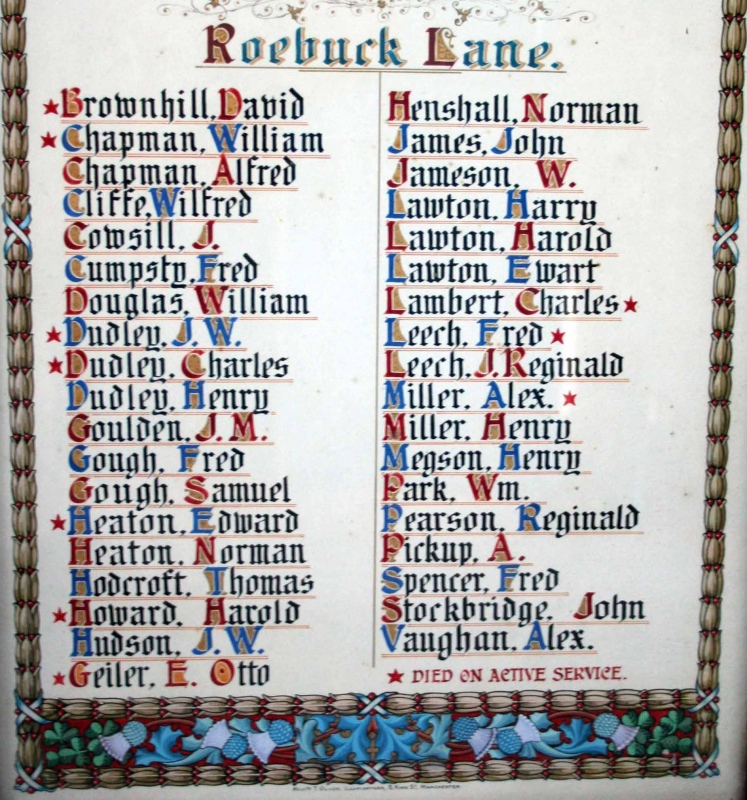 Roebuck Lane.
★Brownhill, David
★Chapman, William
Chapman, Alfred
Cliffe, Wilfred
Cowsill, J.
Cumpsty, Fred
Douglas, William
★Dudley, J. W.
★Dudley, Charles
Dudley, Henry
Goulden, J. M.
Gough, Fred
Gough, Samuel
★Heaton, Edward
Heaton, Norman
Hodcroft, Thomas
★Howard, Harold
Hudson, J. W.
★Geiler, E. Otto
Henshall, Norman
James, John
Jameson, W.
Lawton, Harry
Lawton, Harold
Lawton, Ewart
Lambert, Charles★
Leech, Fred★
Leech, J. Reginald
Miller, Alex.★
Miller, Henry
Megson, Henry
Park, Wm.
Pearson, Reginald
Pickup, A.
Spencer, Fred
Stockbridge, John
Vaughan, Alex.
★ DIED ON ACTIVE SERVICE.
KING ST. MANCHESTER